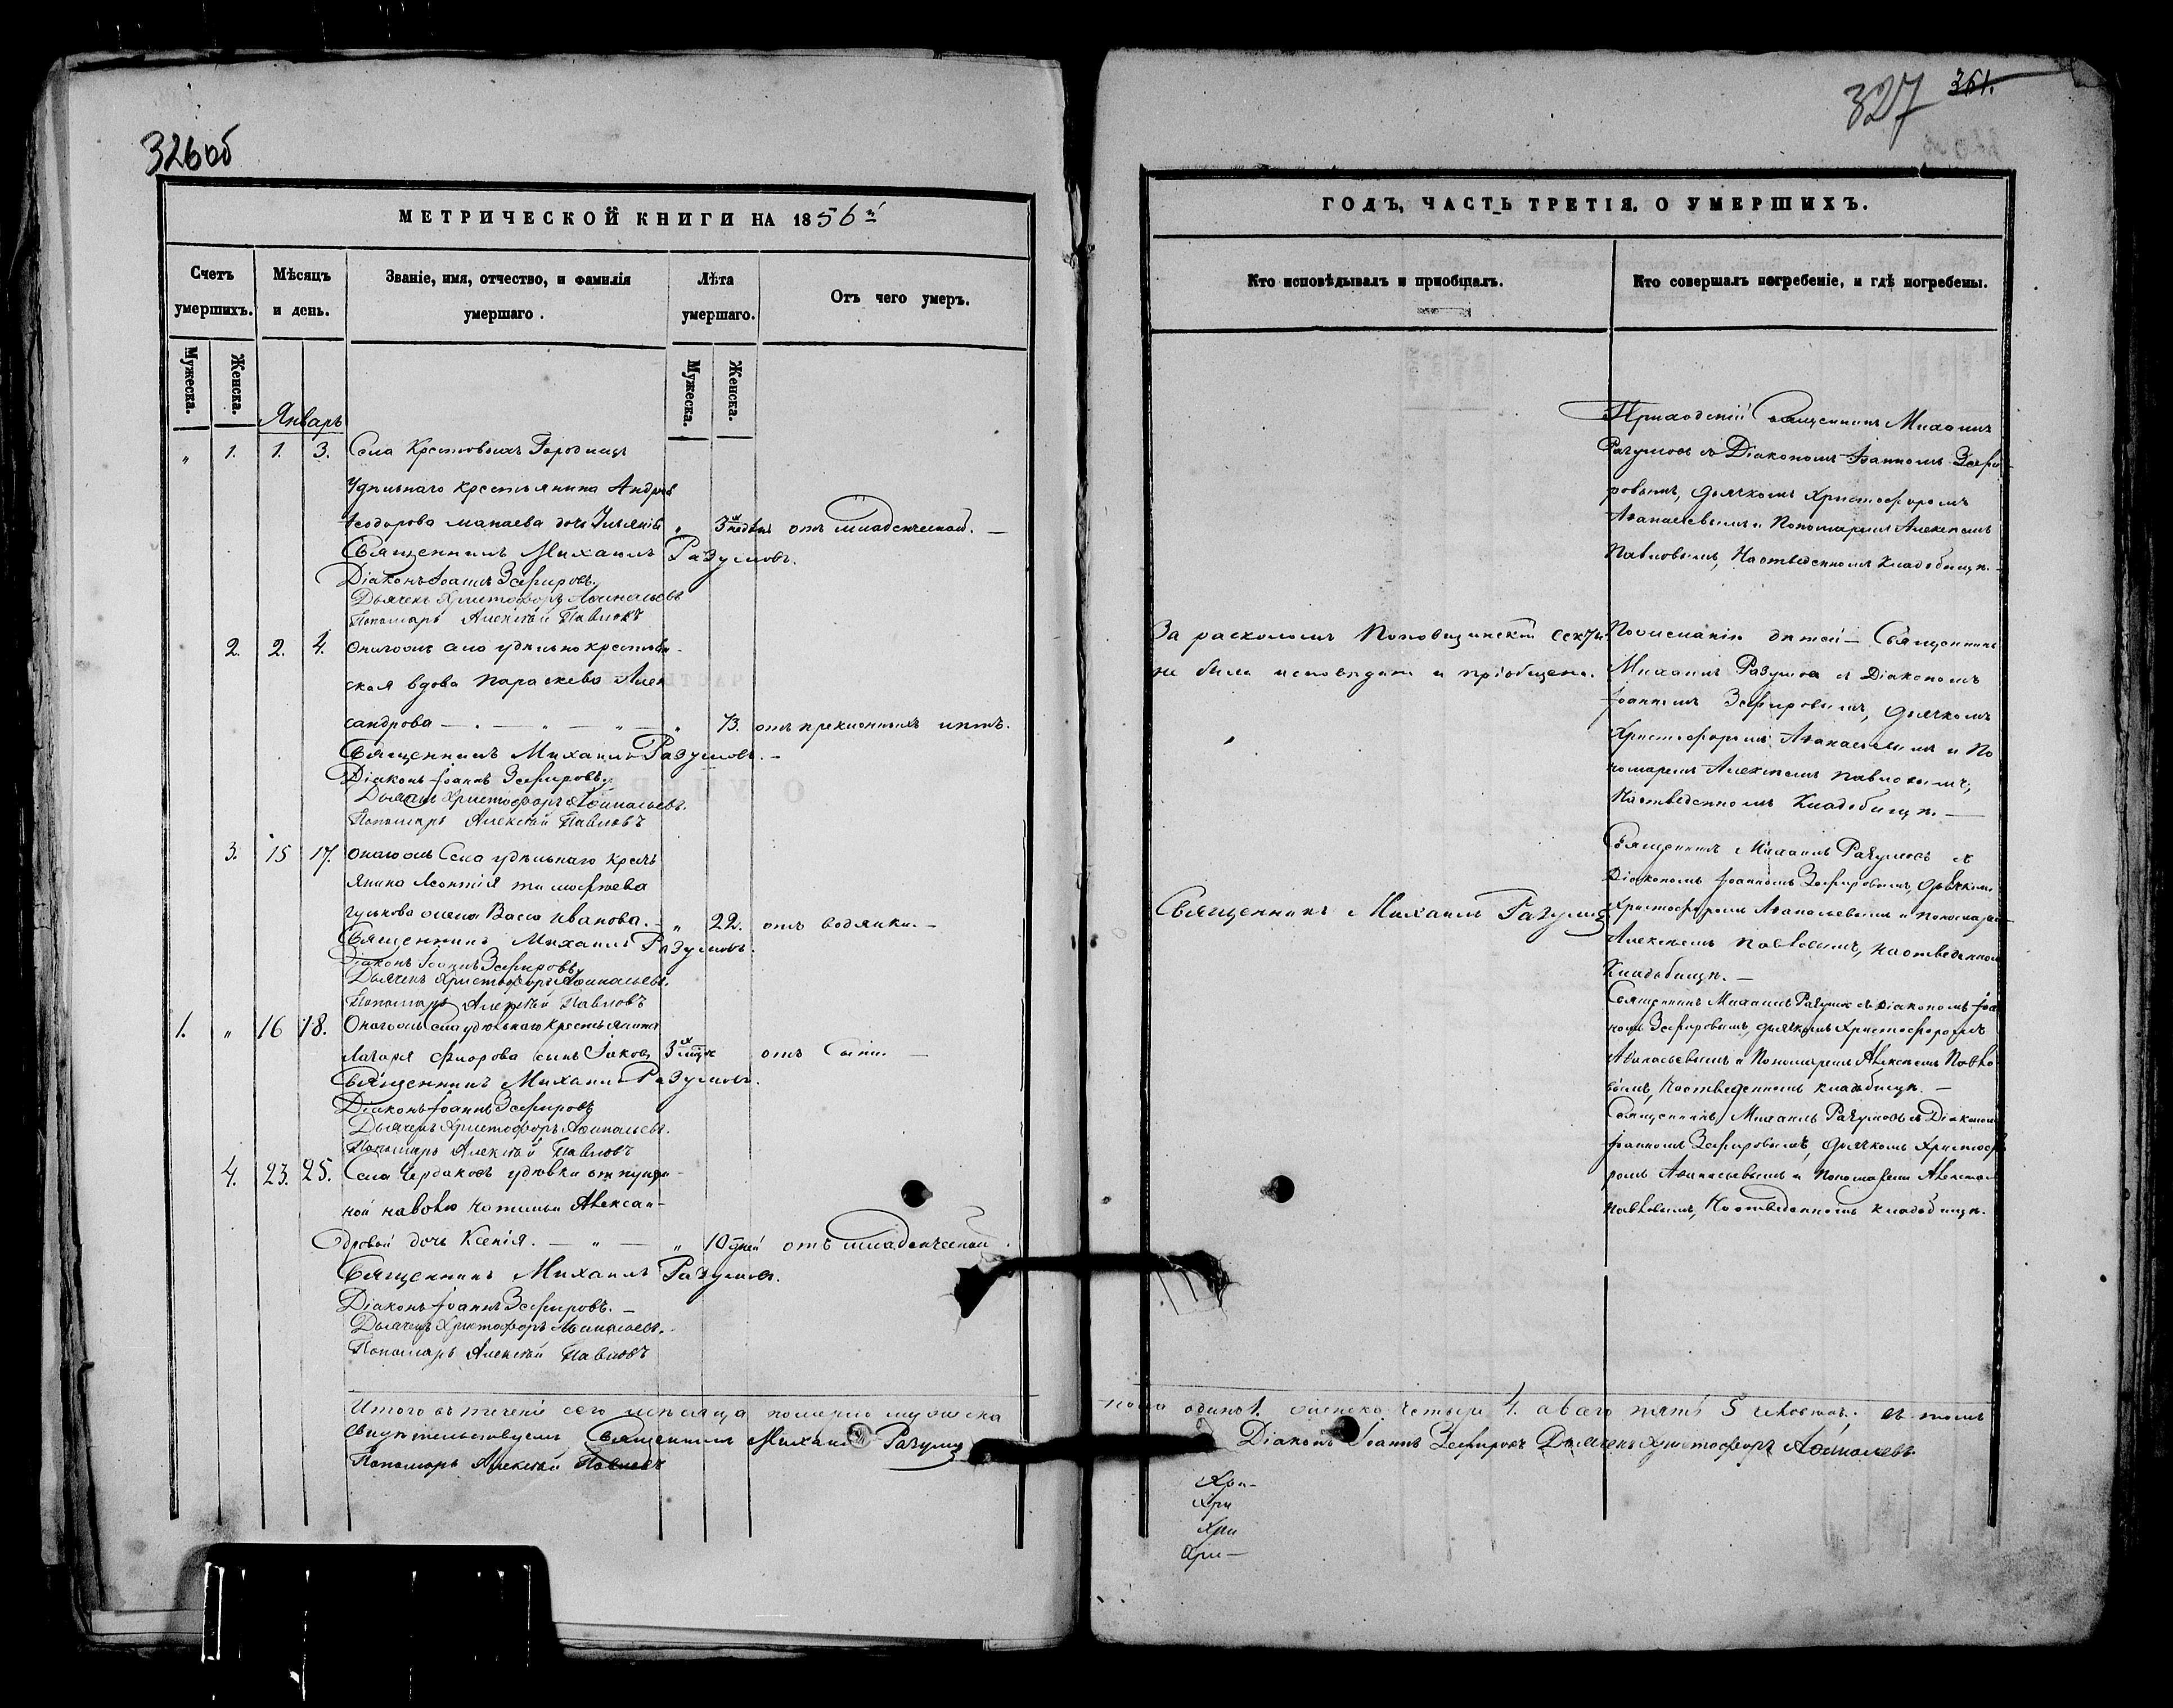 326об
МЕТРИЧЕСКОЙ КНИГИ НА 1856й
Счетъ умершихъ.
Мѣсяцъ и день.
Званіе, имя, отчество, и фамилія умершаго.
Лѣта умершаго.
Отъ чего умеръ.
Мужеска.
Женска.
Мужеска.
Женска.
Январь
„ 1. 1. 3. Села Крестовыхъ Городищъ
Удѣльнаго крестьянина Андрея
Ѳеодорова дочь „ 3х недѣль отъ младенческой. —
Священникъ Михаилъ Разумовъ.
Діаконъ Іоаннъ Зефировъ.
Дьячекъ Христофоръ Аѳинасьевъ
Пономарь Алексѣй Павловъ
2. 2. 4. Онагожъ села удѣльно крестьян-
ская вдова Параскева Алек
сандрова — „ — „ — „ 73. отъ преклонныхъ лѣтъ.
Священникъ Михаилъ Разумовъ. —
Діаконъ Іоаннъ Зефировъ.
Дьячекъ Христофоръ Аѳинасьевъ.
Пономарь Алексѣй Павловъ
3. 15 17. Онагожъ Села удѣльнаго кресть
янина Леонтія Тимофѣева
Гуськова жена Васса Иванова. — „ 22. отъ водянки. —
Священникъ Михаилъ Разумовъ.
Діаконъ Іоаннъ Зефировъ
Дьячекъ Христофоръ Аѳинасьевъ.
Пономарь Алексѣй Павловъ
1. „ 16 18. Онагожъ села удѣльнаго крестьянина
Лазаря сынъ Іаковъ 3х мѣс отъ
Священникъ Михаилъ Разумовъ.
Діаконъ Іоаннъ Зефировъ
Дьячекъ Христофоръ Аѳинасьевъ.
Пономарь Алексѣй Павловъ
4. 23. 25. Села Чердаковъ
Алексан-
дровой дочь Ксенія. — „ — „ 10 дней отъ младенческой.
Священникъ Михаилъ Разумовъ.
Діаконъ Іоаннъ Зефировъ. —
Дьячекъ Христофоръ Аѳинасьевъ.
Пономарь Алексѣй Павловъ
Итого въ теченіе сего мѣсяца померло мужеска
свидѣтельствуемъ Священникъ Михаилъ Разумовъ
Пономарь Алексѣй Павловъ
327 361.
ГОДЪ, ЧАСТЬ ТРЕТІЯ, О УМЕРШИХЪ.
Кто исповѣдывалъ и приобщалъ.
Кто совершалъ погребеніе, и гдѣ погребены.
Приходскій Священникъ Михаилъ
Разумовъ съ Діакономъ Іоанномъ Зефи-
ровымъ, дьячкомъ Христофоромъ
Аѳанасьевымъ и Пономаремъ Алексѣемъ
Павловымъ, На отведенномъ кладбищѣ.
За расколомъ Поповщинской секты
не была исповѣдана и пріобщена.
Священникъ
Михаилъ Разумовъ съ Діакономъ
Іоанномъ Зефировымъ, дьячкомъ
Христофоромъ Аѳанасьевымъ и По
номаремъ Алексѣемъ Павловымъ,
На отведенномъ кладбищѣ. —
Священникъ Михаилъ Разумовъ
Священникъ Михаилъ Разумовъ съ
Діакономъ Іоанномъ Зефировымъ, дьячкомъ
Христофоромъ Аѳанасьевымъ и пономаремъ
Алексѣемъ Павловымъ, на отведенномъ
кладбищѣ. —
Священникъ Михаилъ Разумовъ съ Діакономъ Іоан
номъ Зефировымъ, дьячкомъ Христофоромъ
Аѳанасьевымъ и Пономаремъ Алексѣемъ Павло
вымъ, На отведенномъ кладбищѣ. —
Священникъ Михаилъ Разумовъ съ Діакономъ
Іоанномъ Зефировымъ, дьячкомъ Христоф
ромъ Аѳанасьевымъ и Пономаремъ Алексѣемъ
Павловымъ, На отведенномъ кладбищѣ.
пола одинъ 1. женска четыре 4. а всего пять 5 человѣкъ. въ томъ
Діаконъ Іоаннъ Зефировъ Дьячекъ Христофоръ Аѳинасьевъ
Хри-
Хри
Хри
Хри—